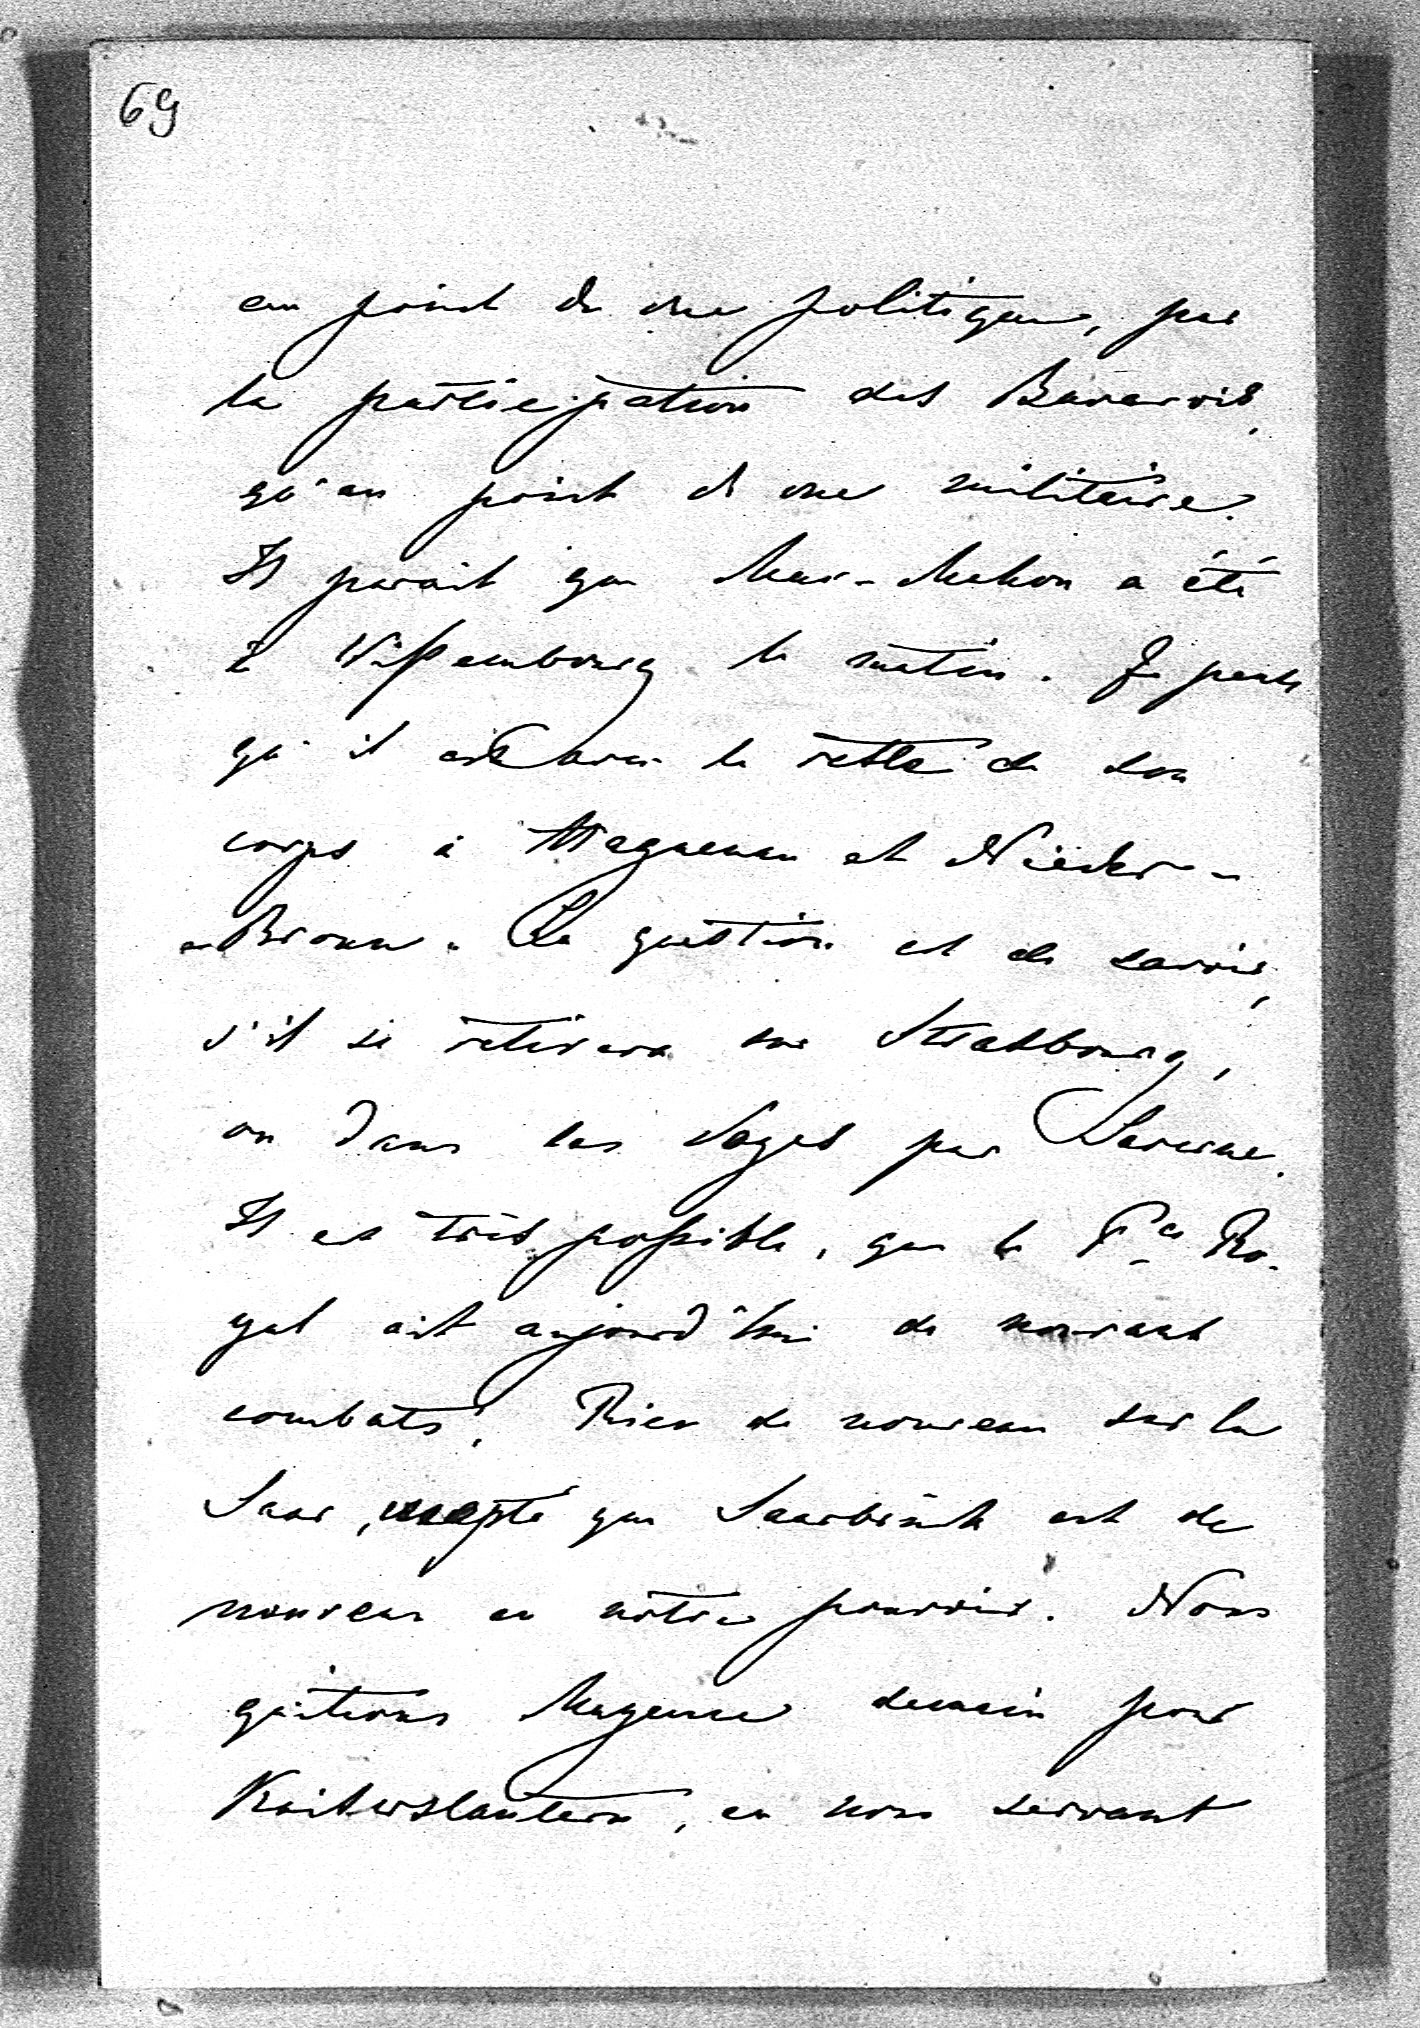 69
au point de vue politique, par
la participation des Bavarois,
qu'au point de vue militaire.
Il parait que Mac-Mahon a été
à Wissembourg le matin. Je pense
qu'il est avec le reste de son
corps à Haguenau et Nieder-
-Bronn. La question est de savoir,
s'il se retirera sur Strasbourg,
ou dans les Voges par Saverne.
Il est très possible, que le Pce Ro-
yal ait aujourd'hui de nouveaux
combats. Rien de nouveau sur la
Saar, excepté que Saarbrück est de
nouveau en notre pouvoir. Nous
quitons Mayence demain pour
Kaiserslautern, en nous servant